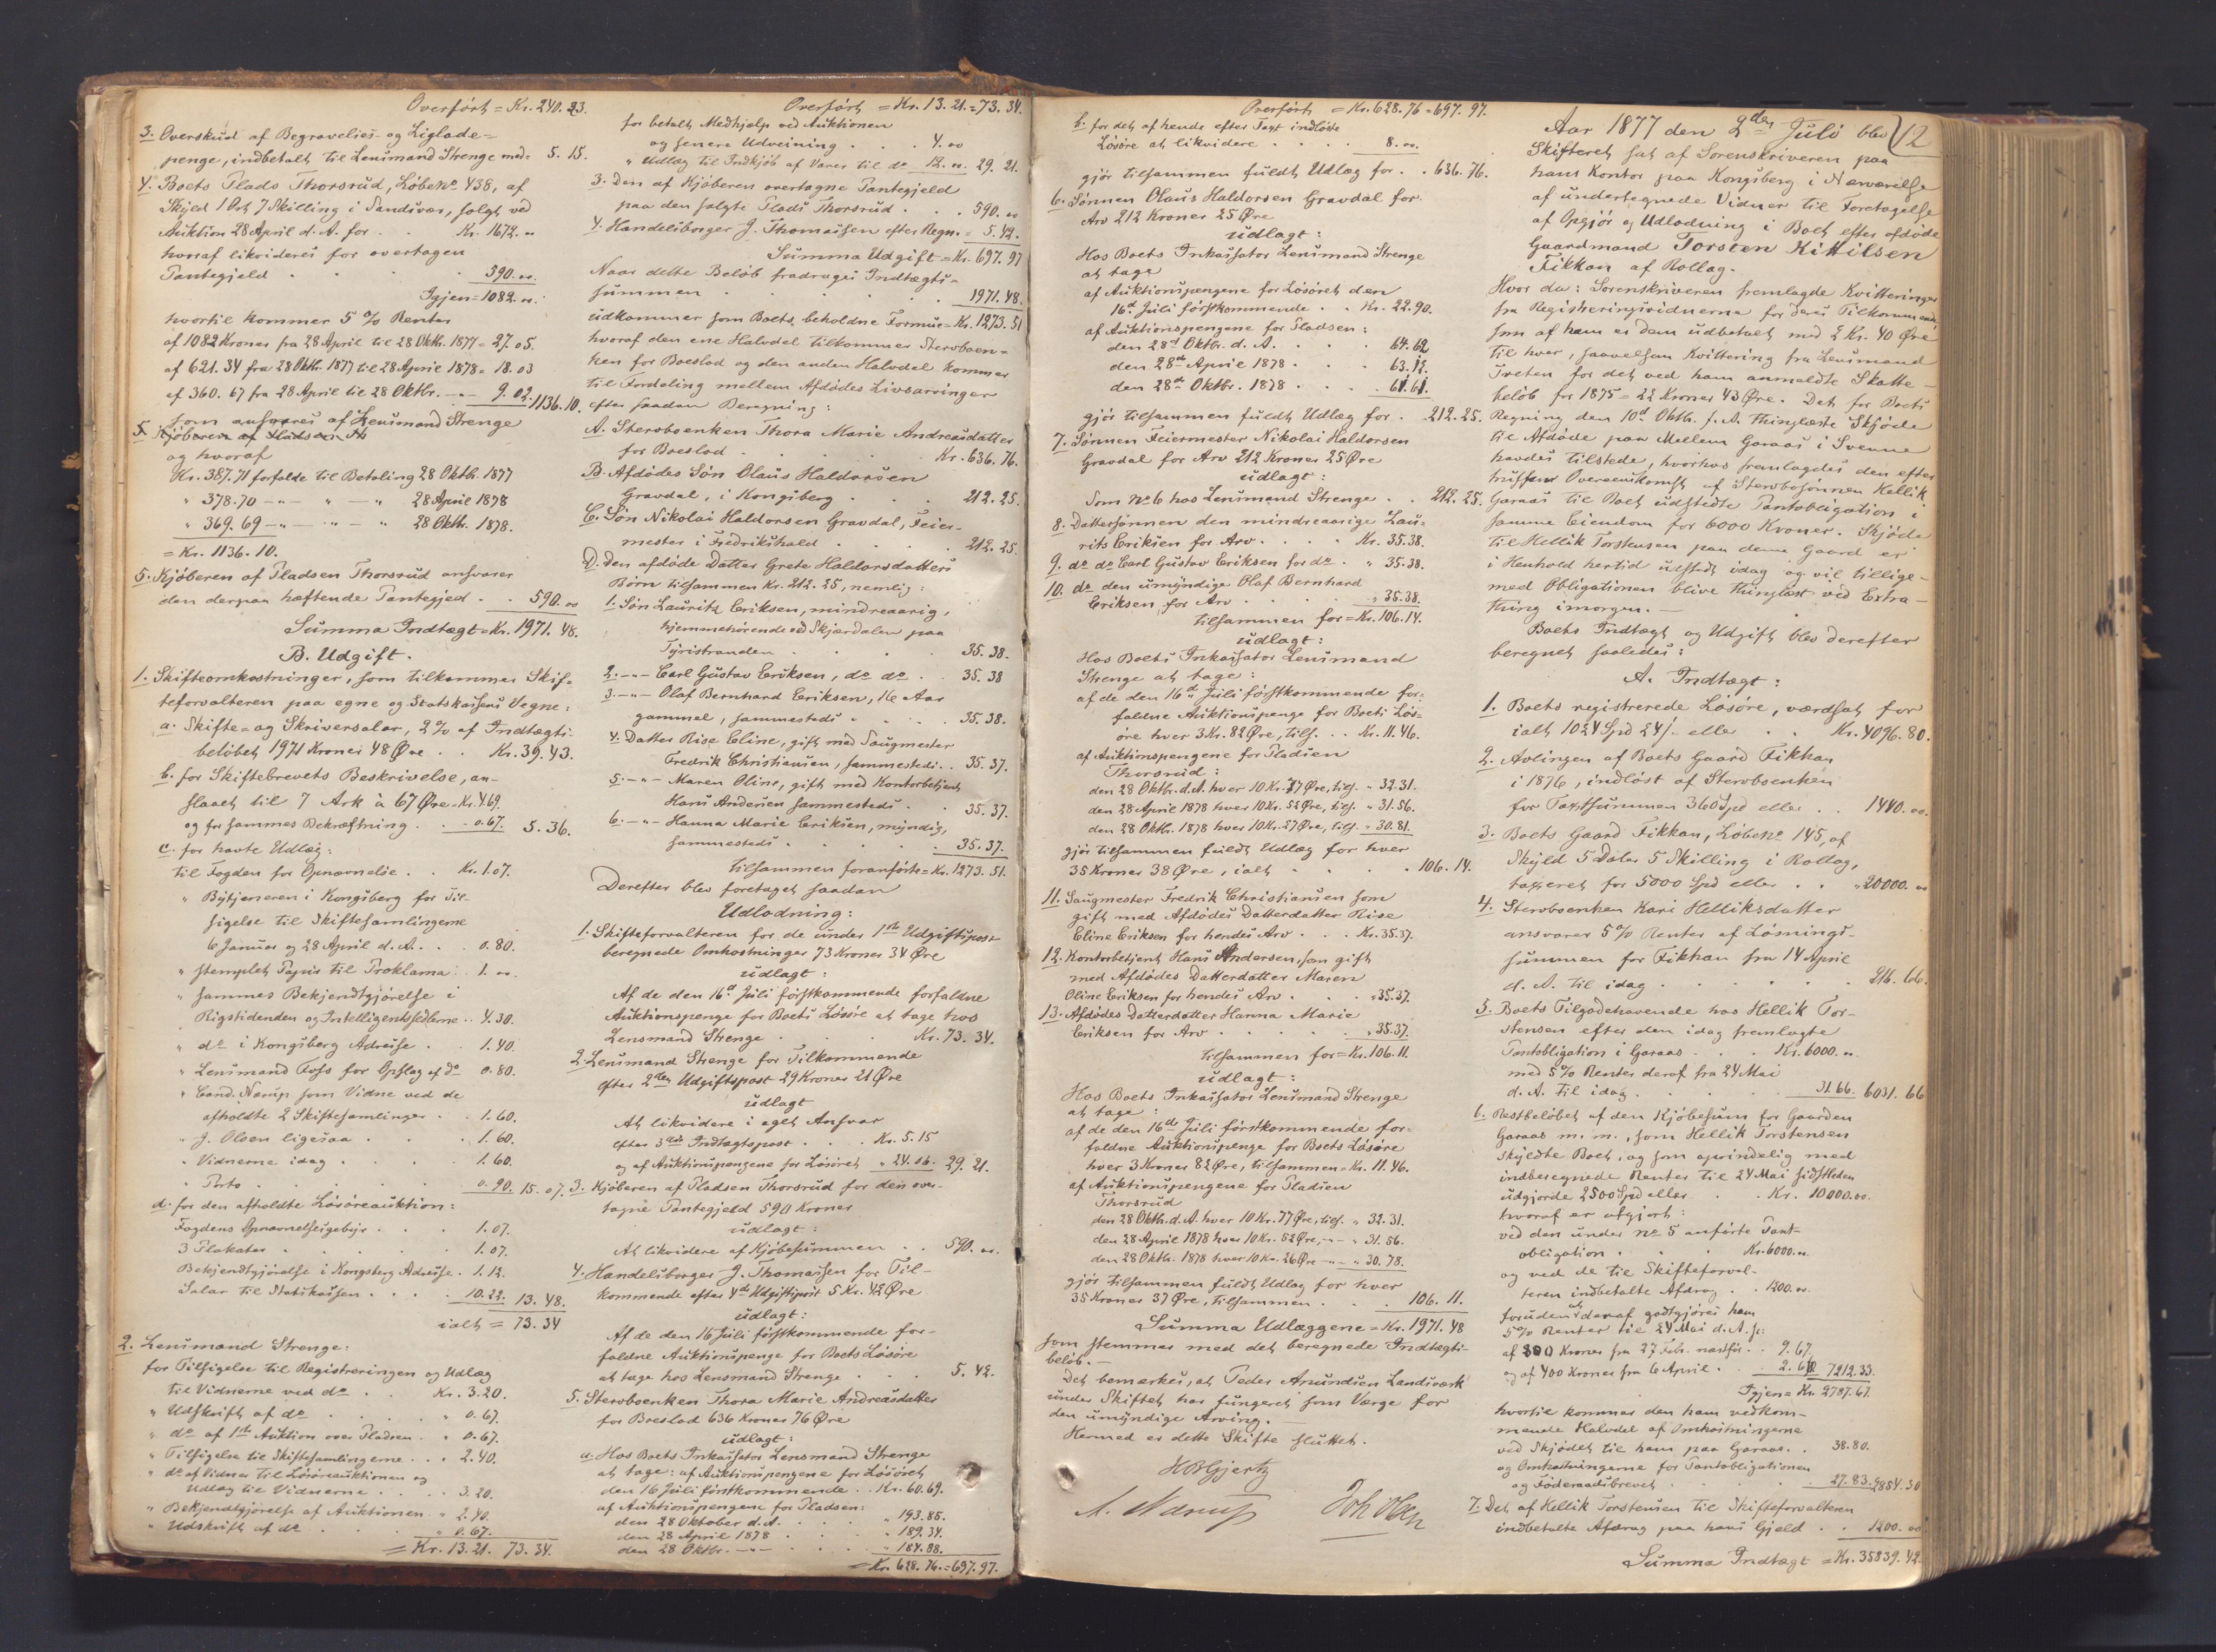 Overført = Kr. 240. 23.
3. Overskud af Begravelses- og Liglade-
penge, indbetalt til Lensmand Strenge med = 5. 15.
4. Boets Plads Thorsrud, Løbeno 438, af
Skyld 1 Ort 7 Skilling i Sandsvær, solgt ved
Auktion 28 April d. A. for . . Kr. 1672. "
hvoraf likvideres for overtagen
Pantegjeld . . . . 590. oo.
Igjen = 1082. oo.
hvortil kommer 5 % Renter
af 1082 Kroner fra 28 April til 28 Oktb. 1877 = 27. 05.
af 621. 34 fra 28 Oktb. 1877 til 28 April 1878 = 18. 03
af 360. 67 fra 28 April til 28 Oktbr. — " — 9. 02. 1136. 10.
som ansvares af Lensmand Strenge
5. Kjøberen af Pladsen Th
og hvoraf
Kr. 387. 71 forfalde til Betaling 28 Oktb. 1877
" 378. 70 — " — " — " 28 April 1878
" 369. 69 — " — " — " 28 Oktb. 1878.
= Kr. 1136. 10.
5. Kjøberen af Pladsen Thorsrud ansvarer
den derpaa hæftende Pantegjed . . 590. oo
Summa Indtægt = Kr. 1971. 48.
B. Udgift.
1. Skifteomkostninger, som tilkommer Skif-
teforvalteren paa egne og Statskassens Vegne:
a. Skifte- og Skriversalær, 2 % af Indtægts-
beløbet 1971 Kroner 48 Øre . . Kr. 39. 43.
b. for Skiftebrevets Beskrivelse, an-
slaaet til 7 Ark à 67 Øre = Kr. 4.69.
og for sammes Bekræftning . . 0. 67. 5. 36.
c. for havte Udlæg:
til Fogden for Opnævnelse . . Kr. 1. 07.
" Bytjeneren i Kongsberg for Til-
sigelse til Skiftesamlingerne
6 Januar og 28 April d. A. . . 0. 80.
" stemplet Papir til Proklama . 1. oo.
" sammes Bekjendtgjørelse i
Rigstidenden og Intelligentssedlerne . . 4. 30.
" do i Kongsberg Adresse . . 1. 40.
" Lensmand Foss for Opslag af do 0. 80.
" Cand. Narup som Vidne ved de
afholdte 2 Skiftesamlinger . . 1. 60.
" J. Olsen ligesaa . . . 1. 60.
" Vidnerne idag . . . 1. 60.
" Porto . . . . 0. 90. 15. 07.
d. for den afholdte Løsøreauktion:
Fogdens Opnævnelsesgebyr . . 1. 07.
3 Plakater . . . . 1. 07.
Bekjendtgjørelse i Kongsberg Adresse . 1. 12.
Salær til Statskassen . . . 10. 22. 13. 48.
ialt = 73. 34
2. Lensmand Strenge:
for Tilsigelse til Registreringen og Udlæg
til Vidnerne ved do . . Kr. 3. 20.
" Udskrift af do . . . " 0. 67.
" do af 1ste Auktion over Pladsen . " 0. 67.
" Tilsigelse til Skiftesamlingerne . . 2. 40.
" do af Vidner til Løsøreauktionen og
Udlæg til Vidnerne . . . 3. 20.
" Bekjendtgjørelse af Auktionen . " 2. 40.
" Udskrift af do . . . " 0. 67.
= Kr. 13. 21. 73. 34.
Overført = Kr. 13. 21. = 73. 34.
for betalt Medhjælp ved Auktionen
og senere Udveining . . . 4. oo
" Udlæg til Indkjøb af Varer til do 12. oo. 29. 21.
3. Den af Kjøberen overtagne Pantegjeld
paa den solgte Plads Thorsrud . . . 590. oo
4. Handelsborger J. Thomassen efter Regn. = 5. 42.
Summa Udgift = Kr. 697. 97
Naar dette Beløb fradrages Indtægts-
summen . . . . . . 1971. 48.
udkommer som Boets beholdne Formue = Kr. 1273. 51
hvoraf den ene Halvdel tilkommer Stervboen-
ken for Boeslod og den anden Halvdel kommer
til Fordeling mellem Afdødes Livsarvinger
efter saadan Beregning:
A. Stervboenken Thora Marie Andreasdatter
for Boeslod . . . . Kr. 636. 76.
B. Afdødes Søn Olaus Haldorsen
Gravdal, i Kongsberg . . . 212. 25.
C. Søn Nikolai Haldorsen Gravdal, Feier-
mester i Fredrikshald . . . . 212. 25.
D. Den afdøde Datter Grete Haldorsdatters
Børn tilsammen Kr. 212. 25, nemlig:
1. Søn Lauritz Eriksen, mindreaarig,
hjemmehørende ved Skjærdalen paa
Tyristranden . . . . 35. 38.
2. — " — Carl Gustav Eriksen, do do . . 35. 38
3. — " — Olaf Bernhard Eriksen, 16 Aar
gammel, sammesteds . . . . 35. 38.
4. Datter Rise Eline, gift med Saugmester
Fredrik Christiansen, sammesteds . . 35. 37.
5. — " — Maren Oline, gift med Kontorbetjent
Hans Andersen sammesteds . . 35. 37.
6. — " — Hanna Marie Eriksen, myndig,
sammesteds . . . . 35. 37.
tilsammen foranførte = Kr. 1273. 51.
Derefter blev foretaget saadan
Udlodning:
1. Skifteforvalteren for de under 1ste Udgiftspost
beregnede Omkostninger 73 Kroner 34 Øre
udlagt:
Af de den 16d Juli førstkommende forfaldne
Auktionspenge for Boets Løsøre at tage hos
Lensmand Strenge . . . . Kr. 73. 34.
2. Lensmand Strenge for Tilkommende
efter 2den Udgiftspost 29 Kroner 21 Øre
udlagt
At likvidere i eget Ansvar
efter 3die Indtægtspost . . . Kr. 5. 15
og af Auktionspengene for Løsøret " 24. 06. 29. 21.
3. Kjøberen af Pladsen Thorsrud for den over-
tagne Pantegjeld 590 Kroner
udlagt:
At likvidere af Kjøbesummen . . 590. oo.
4. Handelsborger J. Thomassen for Til-
kommende efter 4de Udgiftspost 5 Kr. 42 Øre
udlagt:
Af de den 16 Juli førstkommende for-
faldne Auktionspenge for Boets Løsøre
at tage hos Lensmand Strenge . . . 5. 42.
5. Stervboenken Thora Marie Andreasdatter
for Boeslod 636 Kroner 76 Øre
udlagt:
a. Hos Boets Inkassator Lensmand Strenge
at tage: af Auktionspengene for Løsøret
den 16 Juli førstkommende . . Kr. 60. 69.
af Auktionspengene for Pladsen:
den 28 Oktober d. A. . . . " 193. 85.
den 28 April 1878 . . . " 189. 34.
den 28 Oktbr. — " — . . . " 184. 88.
= Kr. 628. 76. = 697. 97.
Overført = Kr. 628. 76 = 697. 97.
b. for det af hende efter Taxt indløste
Løsøre at likvidere . . . . 8. oo.
gjør tilsammen fuldt Udlæg for . . 636. 76.
6. Sønnen Olaus Haldorsen Gravdal for
Arv 212 Kroner 25 Øre
udlagt:
Hos Boets Inkassator Lensmand Strenge
at tage
af Auktionspengene for Løsøret den
16d Juli førstkommende . . Kr. 22. 90.
af Auktionspengene for Pladsen:
den 28d Oktbr. d. A. . . . 64. 62
den 28de April 1878 . . . 63. 12.
den 28de Oktbr. 1878 . . . 61. 61.
gjør tilsammen fuldt Udlæg for . 212. 25.
7. Sønnen Feiermester Nikolai Haldorsen
Gravdal for Arv 212 Kroner 25 Øre
udlagt:
Som No 6 hos Lensmand Strenge . . 212. 25.
8. Dattersønnen den mindreaarige Lau-
rits Eriksen for Arv . . . . Kr. 35. 38.
9. do do Carl Gustav Eriksen for do . " 35. 38.
10. do den umyndige Olaf Bernhard
Eriksen for Arv . . . . " 35. 38.
tilsammen for = Kr. 106. 14.
udlagt:
Hos Boets Inkassator Lensmand
Strenge at tage:
af de den 16d Juli førstkommende for-
faldne Auktionspenge for Boets Løs-
øre hver 3 Kr. 82 Øre, tils. . . Kr. 11. 46.
af Auktionspengene for Pladsen
Thorsrud:
den 28 Oktb. d. A. hver 10 Kr. 77 Øre, tils. " 32. 31.
den 28 April 1878 hver 10 Kr. 52 Øre, tils. " 31. 56.
den 28 Oktb. 1878 hver 10 Kr. 27 Øre, tils. " 30. 81.
gjør tilsammen fuldt Udlæg for hver
35 Kroner 38 Øre, ialt . . . . 106. 14.
11. Saugmester Fredrik Christiansen som
gift med Afdødes Datterdatter Rise
Eline Eriksen for hendes Arv . . . Kr. 35. 37.
12. Kontorbetjent Hans Andersen, som gift
med Afdødes Datterdatter Maren
Oline Eriksen for hendes Arv . . . " 35. 37.
13. Afdødes Datterdatter Hanna Marie
Eriksen for Arv . . . . " 35. 37.
tilsammen for = Kr. 106. 11.
udlagt:
Hos Boets Inkassator Lensmand Strenge
at tage:
af de den 16de Juli førstkommende for-
faldne Auktionspenge for Boets Løsøre
hver 3 Kroner 82 Øre, tilsammen = Kr. 11. 46.
af Auktionspengene for Pladsen
Thorsrud
den 28 Oktb. d. A. hver 10 Kr. 77 Øre, tils. " 32. 31.
den 28 April 1878 hver 10 Kr. 52 Øre, — " — " 31. 56.
den 28 Oktb. 1878 hver 10 Kr. 26 Øre — " — " 30. 78.
gjør tilsammen fuldt Udlæg for hver
35 Kroner 37 Øre, tilsammen . . . 106. 11.
Summa Udlæggene = Kr. 1971. 48
som stemmer med det beregnede Indtægts-
beløb. —
Det bemærkes, at Peder Amundsen Landsværk
under Skiftet har fungeret som Værge for
den umyndige Arving. —
Hermed er dette Skifte sluttet.
HBGjertz
A. Narup Joh Olsen
12
Aar 1877 den 2den Juli blev
Skifteret sat af Sorenskriveren paa
hans Kontor paa Kongsberg i Nærværelse
af undertegnede Vidner til Foretagelse
af Opgjør og Udlodning i Boet efter afdøde
Gaardmand Torsten Kittilsen
Fikkan af Rollag.
Hvor da: Sorenskriveren fremlagde Kvitteringer
fra Registreringsvidnerne for deres Tilkommende
som af ham er dem udbetalt med 2 Kr. 40 Øre
til hver, saavelsom Kvittering fra Lensmand
Treten for det ved ham anmeldte Skatte-
beløb for 1875 = 22 Kroner 43 Øre. Det for Boets
Regning den 10d Oktb. f. A. thinglæste Skjøde
til Afdøde paa Mellem Garaas i Svenne
havdes tilstede, hvorhos fremlagdes den efter
truffen Overenskomst af Stervbosønnen Hellik
Garaas til Boet udstedte Pantobligation i
samme Eiendom for 6000 Kroner. Skjøde
til Hellik Torstensen paa denne Gaard er
i Henhold hertil udstedt idag og vil tillige-
med Obligationen blive thinglæst ved Extra-
thing imorgen. —
Boets Indtægt og Udgift blev derefter
beregnet saaledes:
A. Indtægt:
1. Boets registrerede Løsøre, værdsat for
ialt 1024 Spd 24 ß. eller . . Kr. 4096. 80.
2. Avlingen af Boets Gaard Fikkan
i 1876, indløst af Stervboenken
for Taxtsummen 360 Spd eller . . 1440. oo.
3. Boets Gaard Fikkan, Løbeno 145, af
Skyld 5 Daler 5 Skilling i Rollag,
taxeret for 5000 Spd eller . . " 20000. oo
4. Stervboenken Kari Helliksdatter
ansvarer 5 % Renter af Løsnings-
summen for Fikkan fra 14 April
d. A. til idag . . . . . 216. 66.
5. Boets Tilgodehavende hos Hellik Tor-
stensen efter den idag fremlagte
Pantobligation i Garaas . . . Kr. 6000. oo
med 5 % Renter deraf fra 24 Mai
d. A. til idag . . . . 31. 66. 6031. 66
6. Restbeløbet af den Kjøbesum for Gaarden
Garaas m. m., som Hellik Torstensen
skyldte Boet, og som oprindelig med
indberegnede Renter til 24 Mai sidstleden
udgjorde 2500 Spd eller . . Kr. 10000. oo.
hvoraf er afgjort:
ved den under No 5 anførte Pant-
obligation . . . Kr. 6000. oo.
og ved de til Skifteforval-
teren indbetalte Afdrag . . 1200. oo.
foruden at deraf godtgjøres ham
5 % Renter til 24 Mai d. A. :
af 800 Kroner fra 27 Feb. næstfør. . 9. 67.
og af 400 Kroner fra 6 April . . 2. 66 7212. 33.
Igjen = Kr. 2787. 67.
hvortil kommer den ham vedkom-
mende Halvdel af Omkostningerne
ved Skjødet til ham paa Garaas . . 38. 80.
og Omkostningerne for Pantobligationen
og Føderaadsbrevet . . . . 27. 83. 2854. 30
7. Det af Hellik Torstensen til Skifteforvalteren
indbetalte Afdrag paa hans Gjeld . . 1200. oo
Summa Indtægt = Kr. 35839. 42.